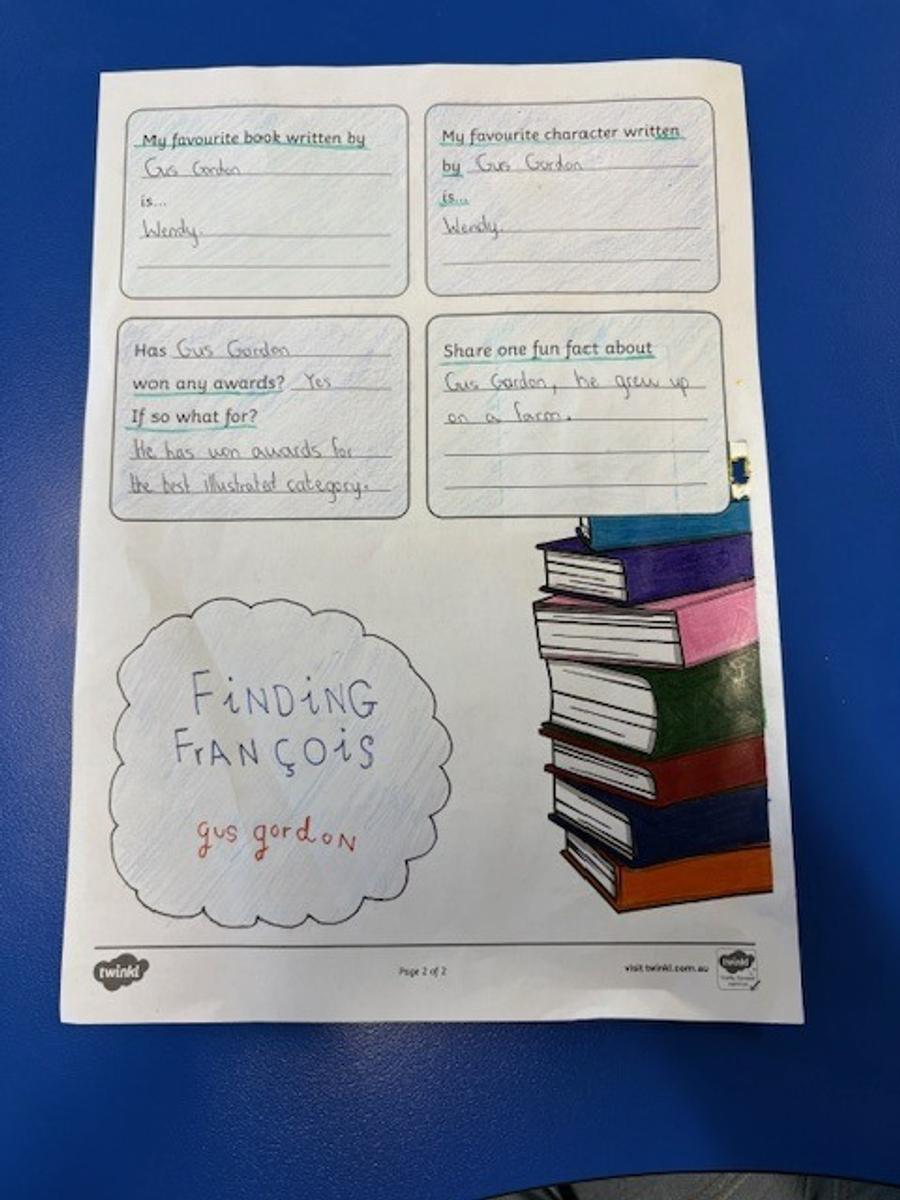 My favourite book written by
Gus Gordon
is...
Wendy.
My favourite character written
by Gus Gordon
is...
Wendy.
Has Gus Gordon
won any awards? Yes
If so what for?
He has won awards for
the best illustrated category.
Share one fun fact about
Gus Gordon, he grew up
on a farm.
FiNDiNG
FrANÇOiS
gus gordoN
twinkl
Page 2 of 2
visit twinkl.com.au
twinkl